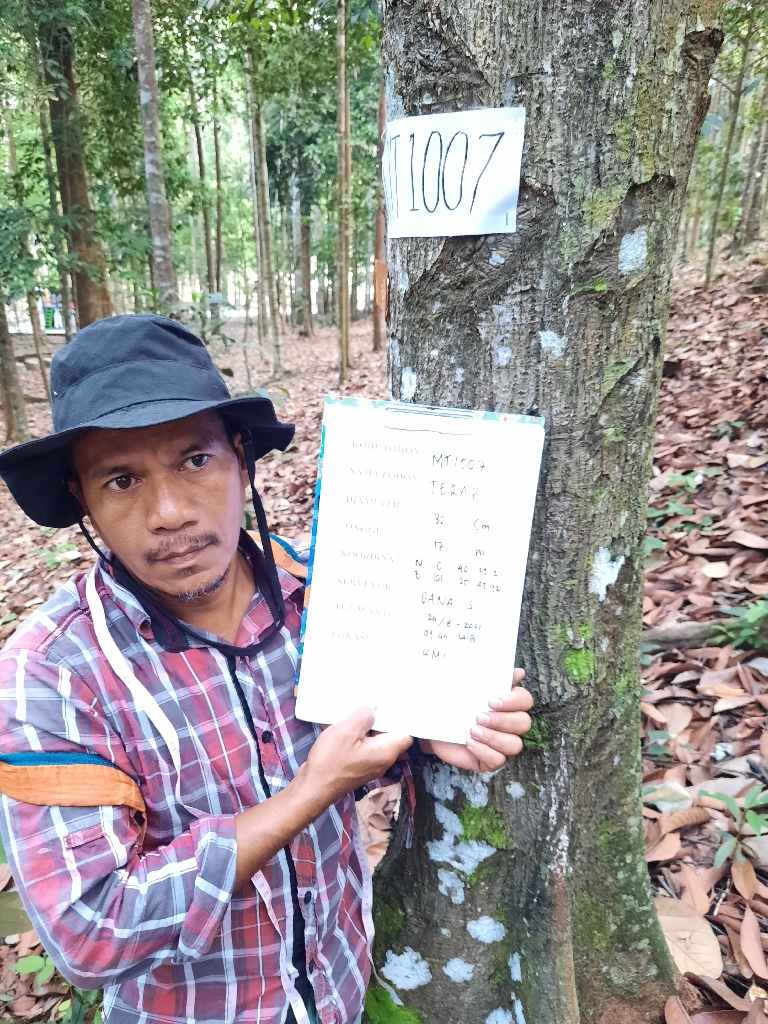 MT1007
KODE POHON MT1007
NAMA POHON TERAP
DIAMETER 32 Cm
TINGGI 17 m
KOORDINAT N 0 40
E 101
SURVEYOR DANA S
TGL/WAKTU 26/8-2021
WIB
LOKASI KMI